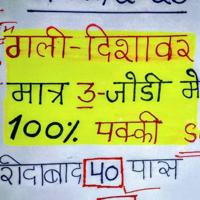 गली-दिशावर
मात्र 3-जोडी मे
100% पक्की
रीदाबाद 40 पास